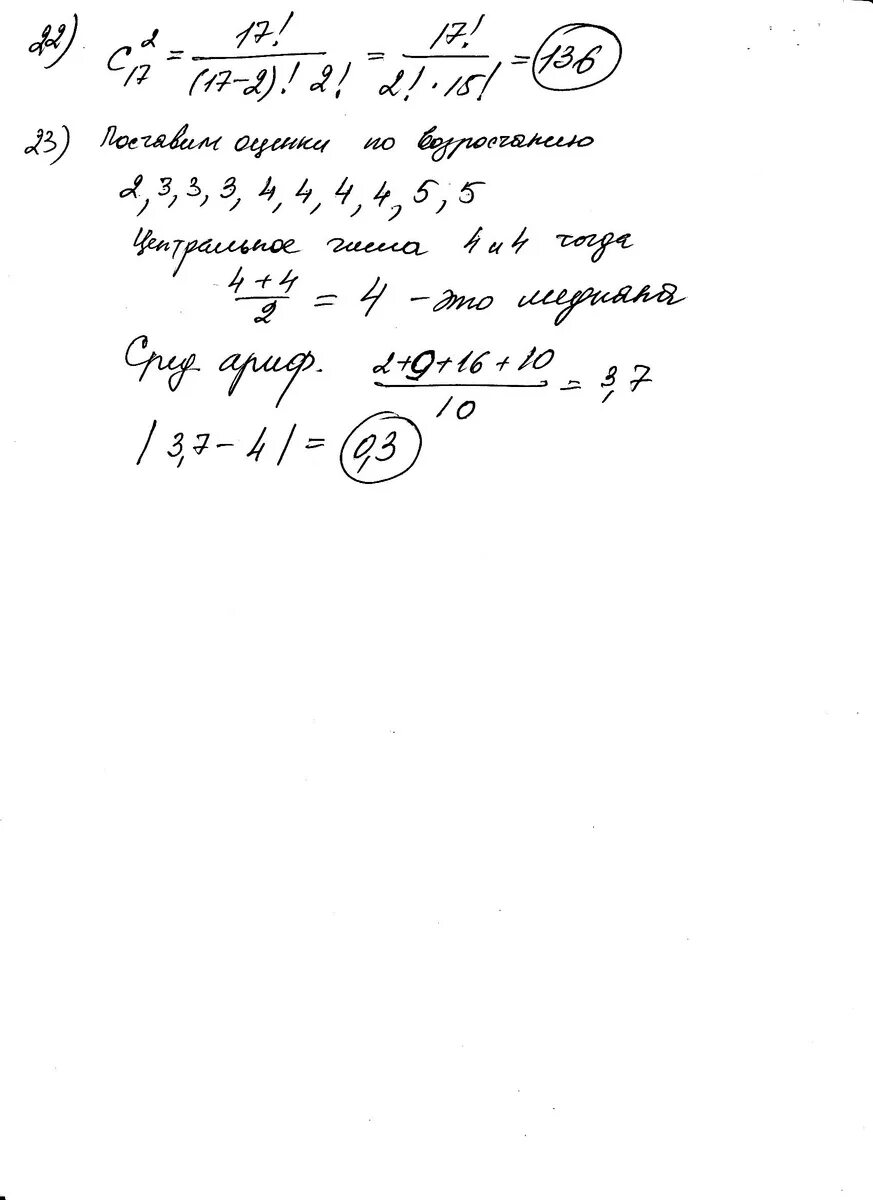 22) C₁₇² = 17!/((17-2)! 2!) = 17!/(2! · 15!) = 136
23) Поставим оценки по возростанию
2, 3, 3, 3, 4, 4, 4, 4, 5, 5
Центральное числа 4 и 4 тогда
(4+4)/2 = 4 - это медиана
Сред ариф. (2+9+16+10)/10 = 3,7
| 3,7 - 4 | = 0,3